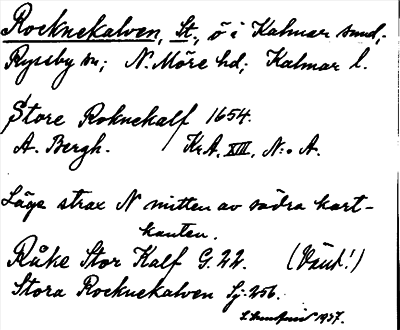 Rocknekalven, St., ö i Kalmar sund,
Ryssby sn; N. Möre hd; Kalmar l.
Store Roknekalf 1654.
A. Bergh. Kr.A. XIII. N:o A.
Läge strax N mitten av södra kart-
kanten.
Råke Stor Kalf G. 22. (Vänd!)
Stora Rocknekalven Sj. 256.
1937.